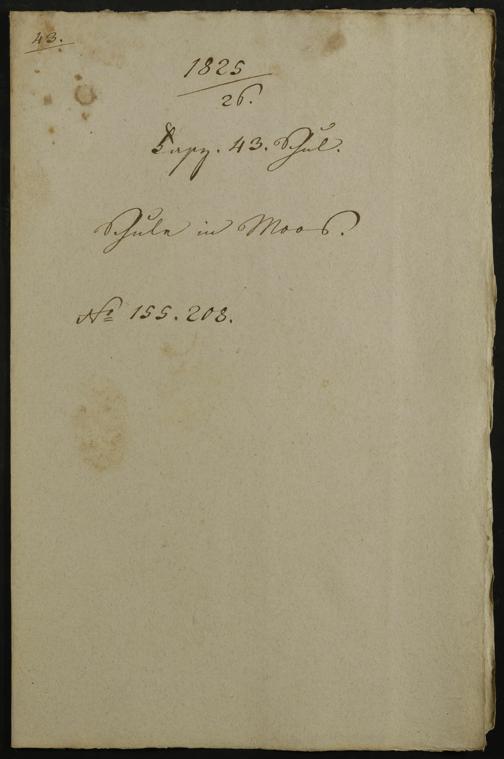 43.
1825
26.
43. Schul.
Schule in Moos.
No 155. 208.